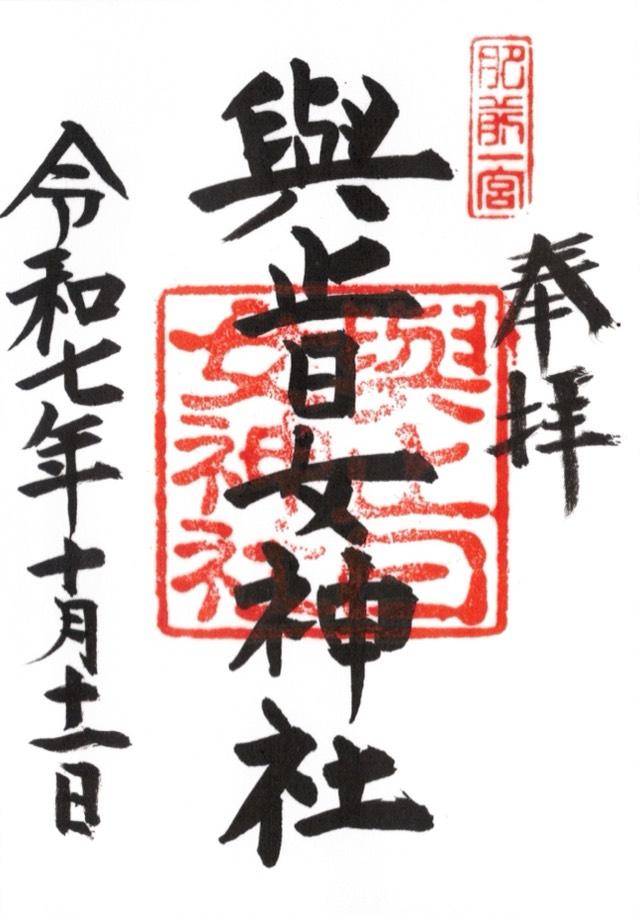 肥前一宮
奉拝
與止日女神社
與止日
女神社
令和七年十月十一日